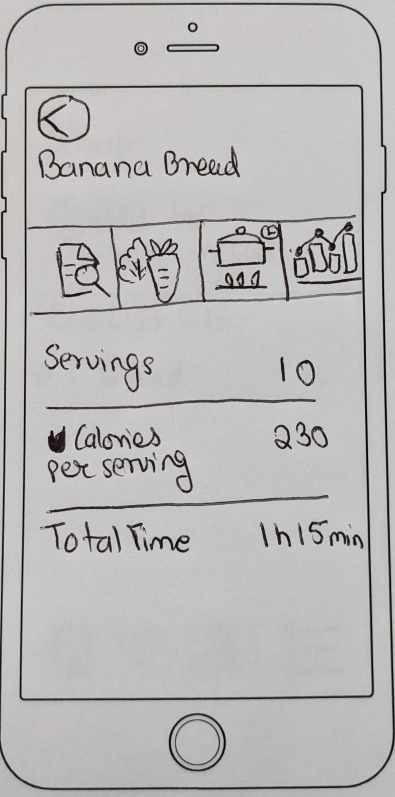 Banana Bread
Servings 10
Calories 230
per serving
Total Time 1h15min